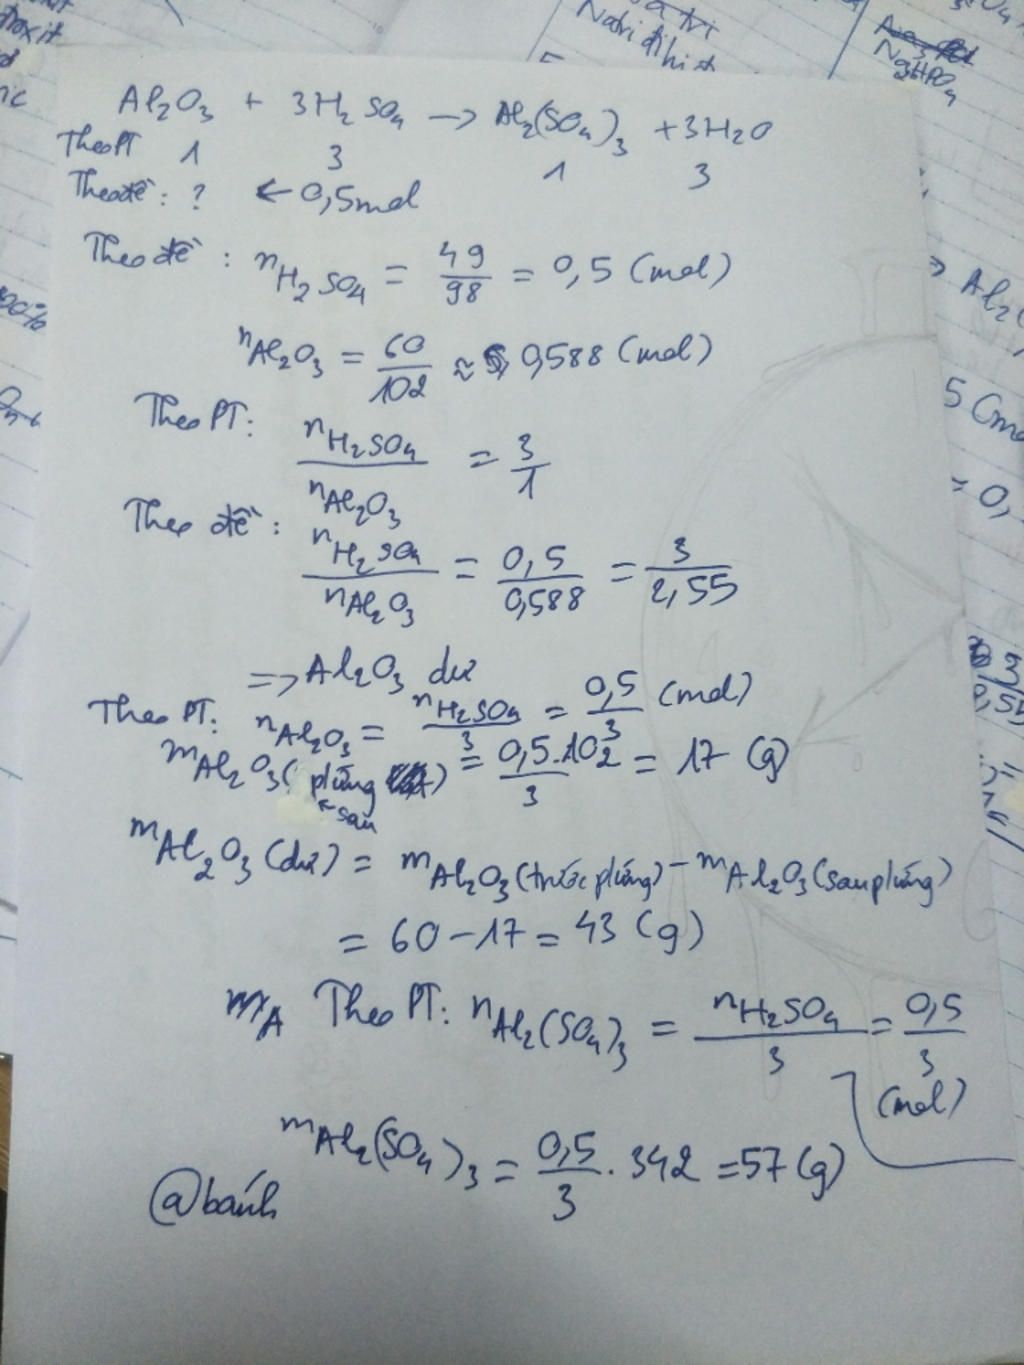 Natri
Natri đihiđ
Na2HPO4
Al2O3 + 3H2SO4 → Al2(SO4)3 + 3H2O
Theo PT 1 3 1 3
Theo đề: ? ← 0,5mol
Theo đề: nH2SO4 = 49/98 = 0,5 (mol)
nAl2O3 = 60/102 ≈ 0,588 (mol)
Theo PT: nH2SO4/nAl2O3 = 3/1
Theo đề: nH2SO4/nAl2O3 = 0,5/0,588 = 3/2,55
=> Al2O3 dư
Theo PT: nAl2O3 = nH2SO4/3 = 0,5/3 (mol)
mAl2O3 (phứng) = 0,5.102/3 = 17 (g)
← sau
mAl2O3 (dư) = mAl2O3 (trước phứng) - mAl2O3 (sau phứng)
= 60 - 17 = 43 (g)
Theo PT: nAl2(SO4)3 = nH2SO4/3 = 0,5/3
(mol)
mAl2(SO4)3 = 0,5/3 . 342 = 57 (g)
@bánh